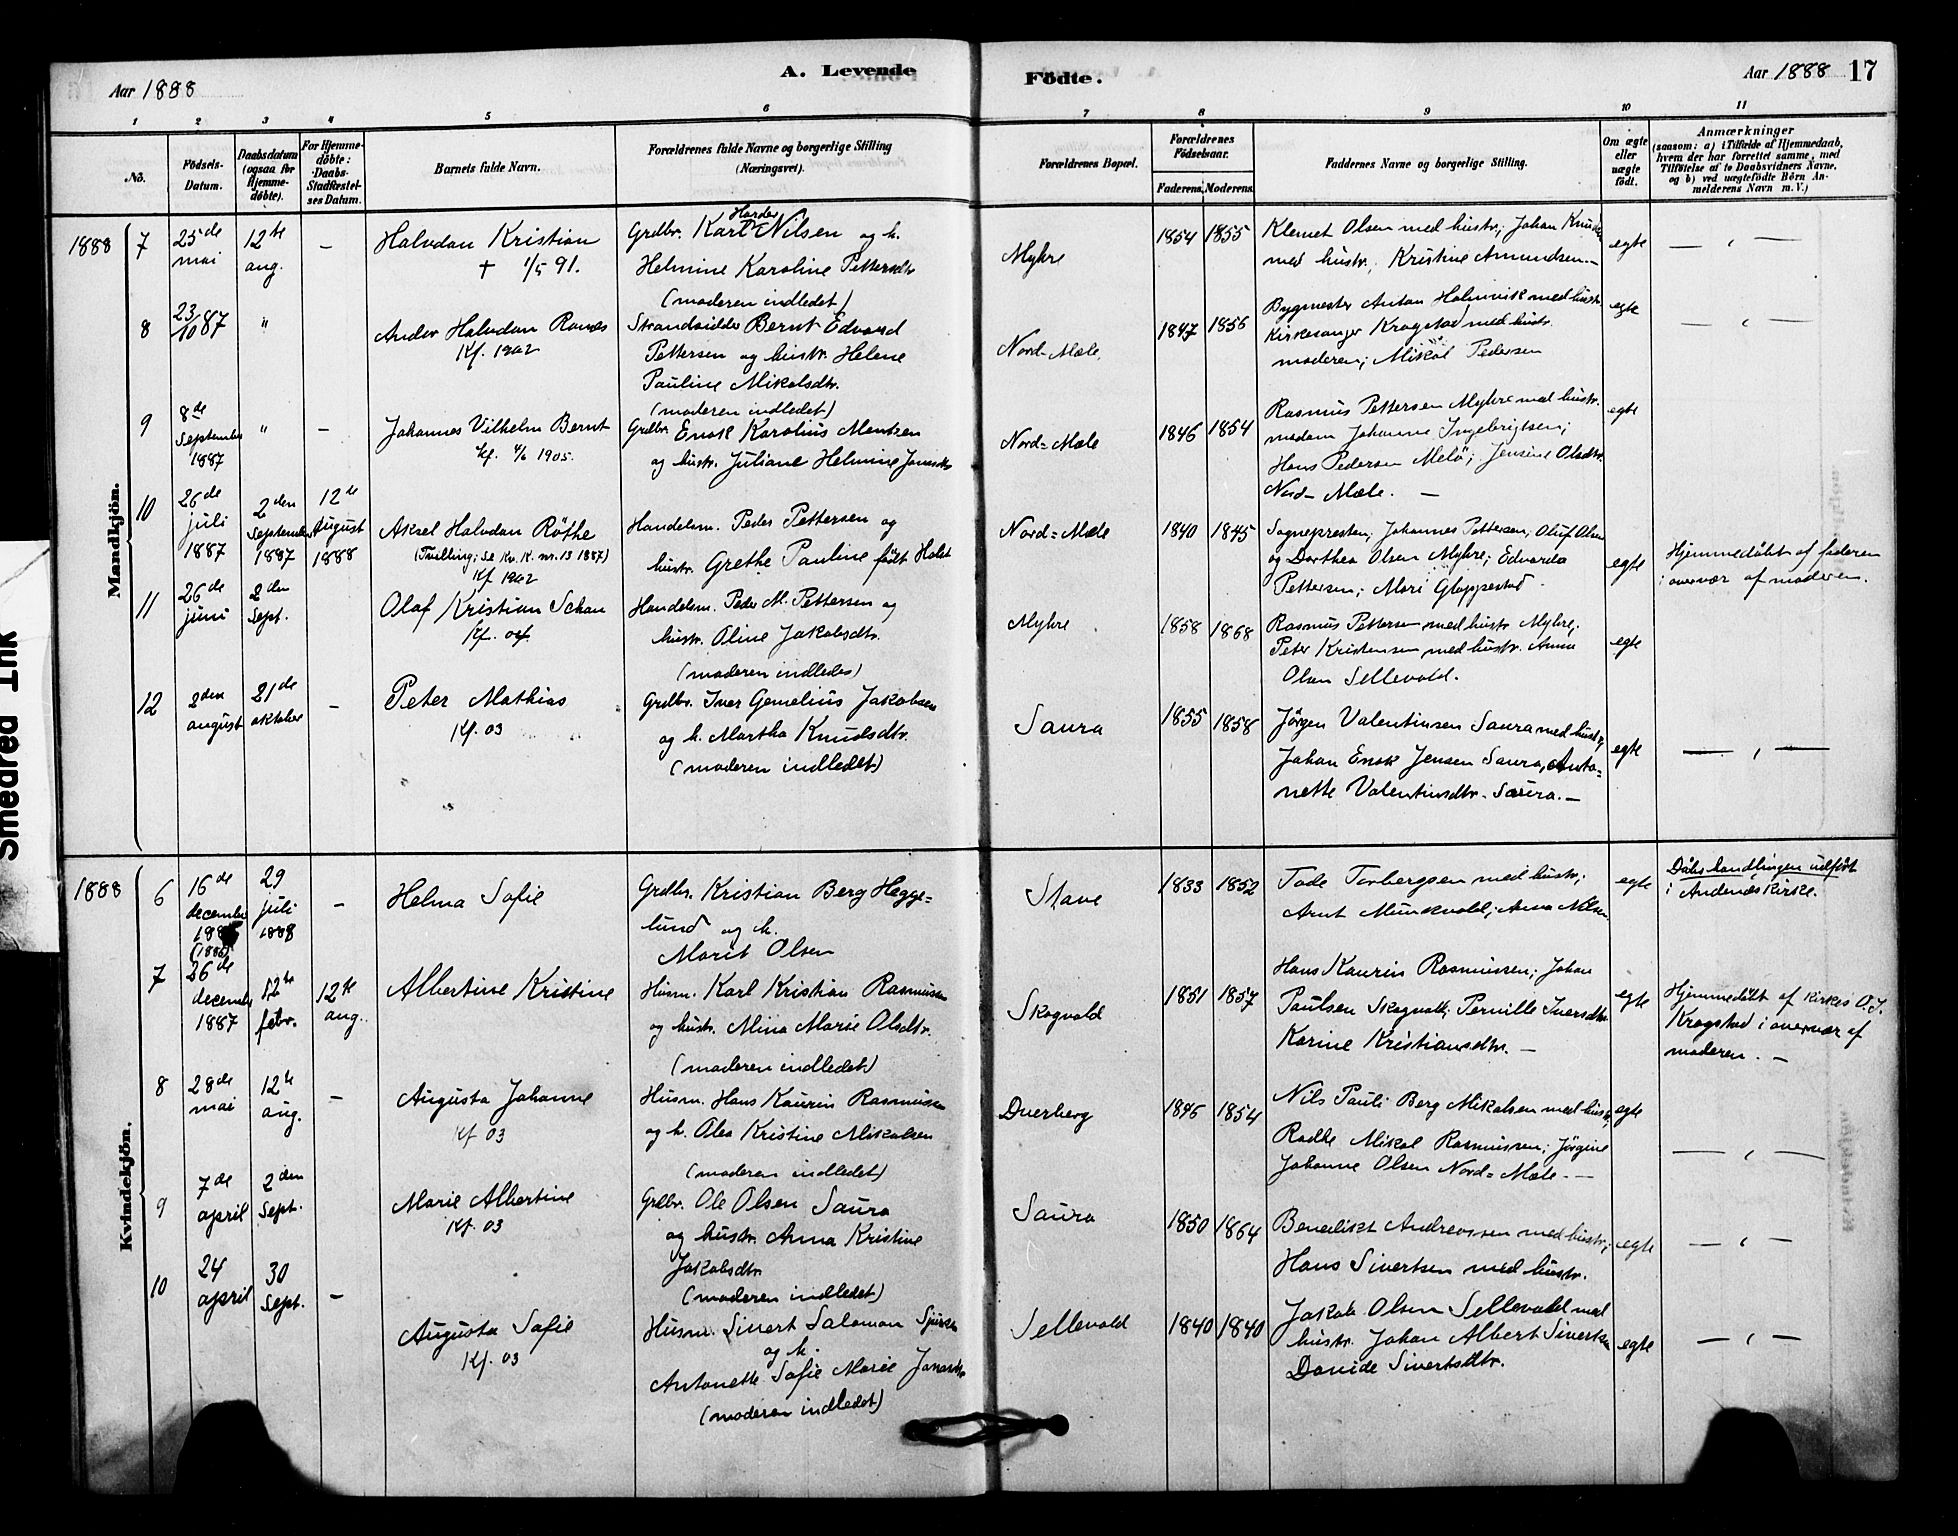 Aar 1888
A. Levende
Födte.
Aar 1888 17
1 2 3 4 5 6 7 8 9 10 11
No.
Födsels-Datum.
Daabsdatum (ogsaa for Hjemme-döbte).
For Hjemme-döbte: Daabs-Stadfæstel-ses Datum.
Barnets fulde Navn.
Forældrenes fulde Navne og borgerlige Stilling (Næringsvei).
Forældrenes Bopæl.
Forældrenes Födselsaar.
Faderens. Moderens.
Faddernes Navne og borgerlige Stilling.
Om ægte eller uægte födt.
Anmærkninger
(saasom: a) i Tilfælde af Hjemmedaab, hvem der har forrettet samme, med Tilföielse af to Daabsvidners Navne, og b) ved uægtefödte Börn An-melderens Navn m. V.)
Mandkjön.
1888 7 25de mai 12te aug. —
Halvdan Kristian
+ 1/5 91.
Grdbr. Karl Nilsen og h.
Helmine Karoline Pettersdtr
(moderen indledet)
Myhre 1854 1855
Klemet Olsen med hustr; Johan Knudsen
med hustr; Kristine Amundsen.—
egte — " —
8 23/10 87 "
Ander Halvdan
Kf. 1902
Strandsidder Bernt Edvard
Pettersen og hustr. Helene
Pauline Mikalsdtr.
(moderen indledet)
Nord-Mæle. 1847 1856
Bygmester Anton Holmvik med hustr.
Kirkesanger Krogstad med hustr.
moderen; Mikal Pedersen
egte — " —
9 8de September 1887 " —
Johannes Vilhelm Bernt
Kf. 1905.
Grdbr. Enok Karolius Mentzen
og hustr. Juliane Helmine
Nord=Mæle 1846 1854
Rasmus Pettersen Myhre med hustr.
madam Johanne Ingebrigtsen;
Hans Pedersen Melö; Jensine Olsdtr.
Nord-Mæle. —
egte
10 26de juli 1887 2den September 1887 12te August 1888
Aksel Halvdan Röthe
(Tvilling; Se Kv. K. nr. 13 1887)
Kf. 1902
Handelsm. Peder Pettersen og
hustr. Grethe Pauline født Holst
Nord=Mæle 1840 1845
Sognepresten; Johannes Pettersen; Oluf Olsen
og Dorthea Olsen Myhre; Edvarda
Pettersen; Mari
egte
Hjemmedöbt af faderen
i overvær af moderen.
11 26de juni 2den Sept.
Olaf Kristian
Kf.
Handelsm. Peder M. Pettersen og
hustr. Oline Jakobsdtr.
(moderen indledes)
Myhre 1858 1868
Rasmus Pettersen med hustr Myhre;
Peter Kristensen med hustr. Anna
Olsen Sellevold.
egte
12 2den august 21de oktober —
Peter Mathias
Kf. 03
Grdbr. Iver Jakobsen
og h. Martha Knudsdtr.
(moderen indledet)
Saura 1855 1858
Jörgen Valentinsen Saura med hustr;
Johan Enok Jensen Saura, Anto=
nette Valentinsdtr. Saura.—
egte — " —
Kvindekjön.
1888 6 16de december 29 juli 1888 —
Helma Sofie
Grdbr. Kristian Berg Hegge=
lund og h.
Marit Olsen
Stave 1833 1852
Tode Torbergsen med hustr;
Arnt Munkvold; Anna Nilsen
egte
Dåbshandlingen udført
i Andenes kirke.
7 26de december 1887 12te febr. 12te aug.
Albertine Kristine
Husm. Karl Kristian Rasmussen
og hustr. Mina Marie Olsdtr.
(moderen indledet)
Skogvold 1851 1857
Hans Kaurin Rasmussen; Johan
Paulsen Skogvold; Pernille Iversdtr
Karine Kristiansdtr. —
egte
Hjemmedöbt af kirkes O.J.
Krogstad i overvær af
moderen. —
8 28de mai 12te aug. —
Augusta Johanne
Kf 03
Husm. Hans Kaurin Rasmussen
og h. Olea Kristine Mikalsen
(moderen indledet)
Dverberg 1846 1854
Nils Pauli Berg Mikalsen med hustr;
Mikal Rasmussen; Jörgine
Johanne Olsen Nord=Mæle. —
egte — " —
9 7de april 2den Sept.
Marie Albertine
Kf. 03
Grdbr. Ole Olsen Saura
og hustr. Anna Kristine
Jakobsdtr.
(moderen indledet)
Saura 1850 1864
Benedikt Andreassen med hustr;
Hans Sivertsen med hustr.
egte — " —
10 24 april 30 Sept. —
Augusta Sofie
Kf. 03
Husm. Sivert Salomon
og h.
Antonette Sofie Marie
(moderen indledet)
Sellevold 1840 1840
Jakob Olsen Sellevold med
hustr. Johan Albert Sivertsen
Davide Sivertsdtr.
egte — " —
Smedred Ink